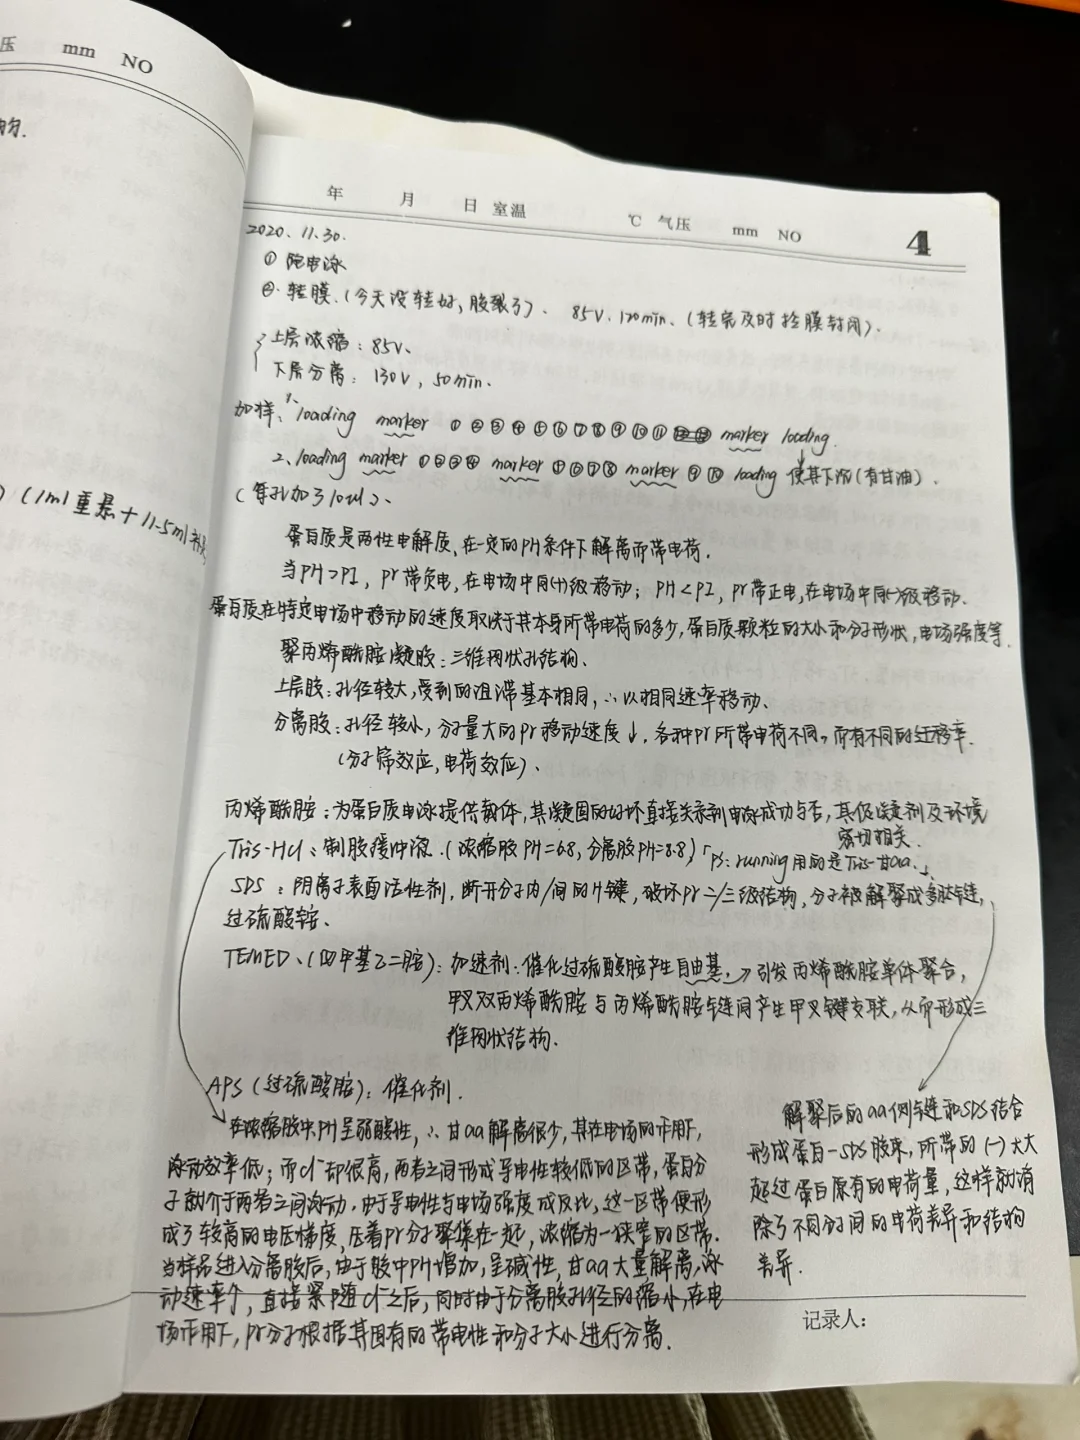 压 mm NO
年 月 日 室温 ℃ 气压 mm NO 4
2020.11.30.
① 跑电泳
②. 转膜.(今天没转好,胶裂了). 85V.120min.(转完及时捡膜封闭).
上层浓缩:85V.
下层分离:130V,50min.
加样:1、loading marker ①②③④⑤⑥⑦⑧⑨⑩⑪ marker loading.
2、loading marker ①②③④ marker ⑤⑥⑦⑧ marker ⑨⑩ loading 使其下沉(有甘油).
(每孔加了10ul).
(1ml重悬+11.5ml
蛋白质是两性电解质,在一定的PH条件下解离而带电荷.
当PH>PI,pr带负电,在电场中向(+)级移动;PH<PI,pr带正电,在电场中向(-)级移动.
蛋白质在特定电场中移动的速度取决于其本身所带电荷的多少,蛋白质颗粒的大小和分子形状,电场强度等.
聚丙烯酰胺凝胶:三维网状孔结构.
上层胶:孔径较大,受到的阻滞基本相同,∴以相同速率移动.
分离胶:孔径较小,分子量大的pr移动速度↓.各种pr所带电荷不同,而有不同的迁移率.
(分子筛效应,电荷效应).
丙烯酰胺:为蛋白质电泳提供载体,其凝固的好坏直接关系到电泳成功与否,其促凝剂及环境
密切相关.
Tris-HCl:制胶缓冲液.(浓缩胶PH=6.8,分离胶PH=8.8)「ps:running用的是Tris-甘aa.」
SDS:阴离子表面活性剂,断开分子内/间的H键,破坏pr二/三级结构,分子被解聚成多肽链,
过硫酸铵.
TEMED、(四甲基乙二胺):加速剂:催化过硫酸胺产生自由基,→引发丙烯酰胺单体聚合,
甲叉双丙烯酰胺与丙烯酰胺链间产生甲叉键交联,从而形成三
维网状结构.
APS(过硫酸胺):催化剂.
在浓缩胶中,PH呈弱酸性,∴甘aa解离很少,其在电场的作用下,
泳动效率低;而Cl⁻却很高,两者之间形成导电性较低的区带,蛋白分
子就介于两者之间泳动,由于导电性与电场强度成反比,这一区带便形
成了较高的电压梯度,压着pr分子聚集在一起,浓缩为一狭窄的区带.
当样品进入分离胶后,由于胶中PH增加,呈碱性,甘aa大量解离,泳
动速率↑,直接紧随Cl⁻之后,同时由于分离胶孔径的缩小,在电
场作用下,pr分子根据其固有的带电性和分子大小进行分离.
解聚后的aa侧链和SDS结合
形成蛋白-SDS胶束,所带的(-)大大
超过蛋白原有的电荷量,这样就消
除了不同分子间的电荷差异和结构
差异.
记录人: